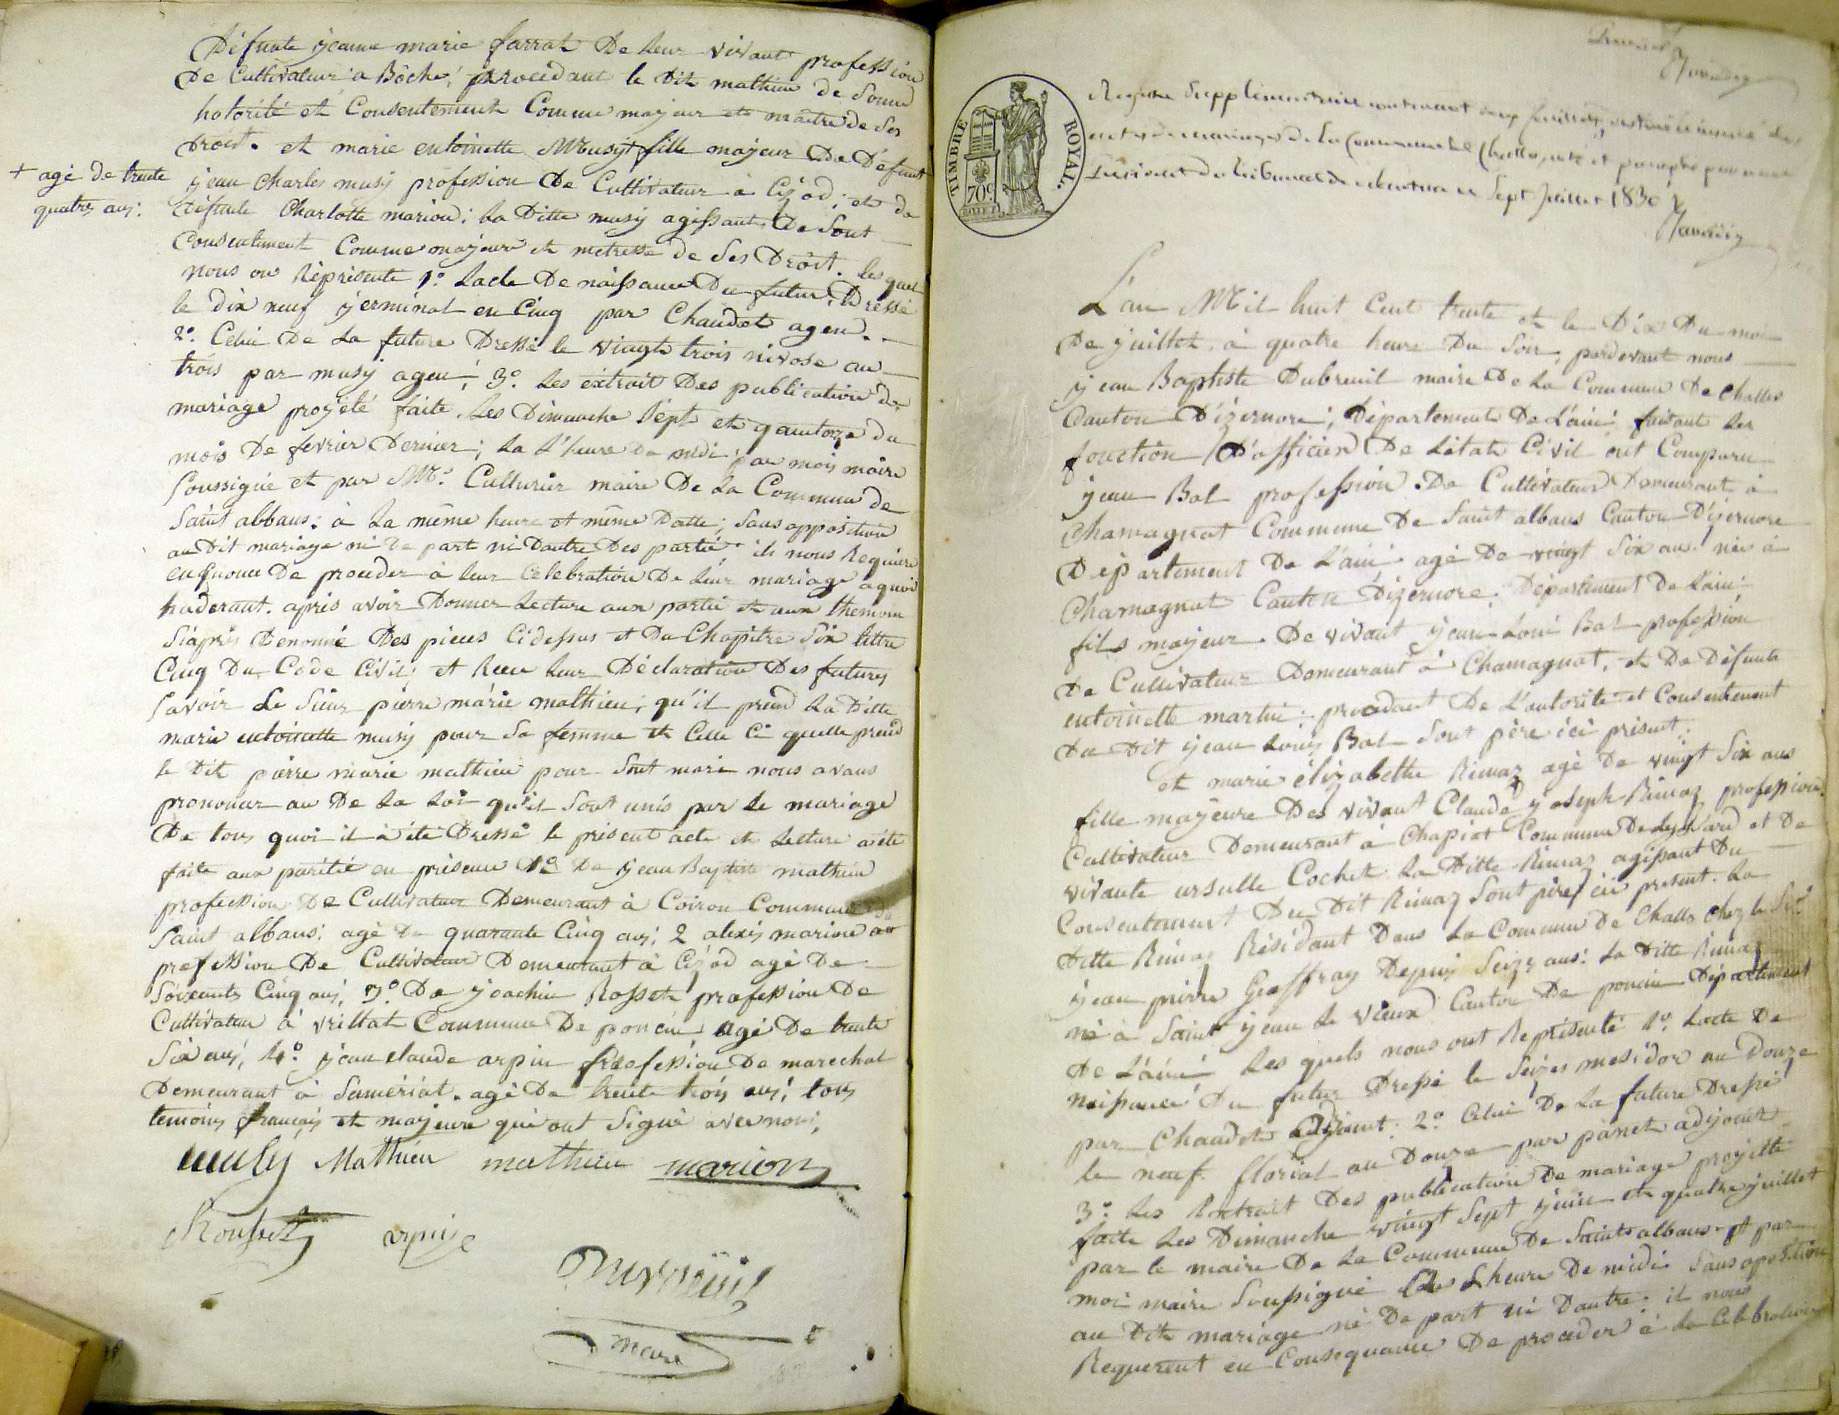 Défunte jeanne marie farrat De leur vivant profession
De Cultivateur a Bôche; procédant le Dit mathieu de Sonnd
hotorité et Consentement Comme majeur et maitre de Ses
Droit. et marie entoinette Musy fille majeur De Défunt
+ agé de trente
quatres ans:
jean Charles musy profession De Cultivateur à Cizod; et de
Défunte Charlotte marion; la Ditte musy agissant De Sont
Consentiment Comme majeure et metresse de Ses Droit. les quel
nous on Représenté 1.o Lacte De naissance Du futur, Dressé
le dix neuf jerminal en Cinq par Chaudet agend.
2.o Celui De La future Dressé le vingts trois nivose an
trois par musy agen; 3.o Les éxtrait Des publication de
mariage projété faite Les Dimanche Sept et quatorze du
mois De fevrier Dernier; La L'heure De midi par mois maire
Soussigné et par Mr. Cullurier maire De La Commune de
Saint albans; à La même heure et même Datte; Sans opposition
au Dit mariage ni De part ni Dautre Des partié ils nous Requiere
De proceder à leur Celebration De Leur mariage aquoi
haderant. après avoir Donner Lecture aux partié et aux themoin
Siaprès Denommé Des pieces Cidessus et Du Chapitre Six tittre
Cinq Du Code Civil; et Recu leur Déclaration Des futurs
Savoir Le Sieur pierre marie mathieu, qu'il prend La Ditte
marie entoinette musy pour Sa femme et Celle Ci quelle prend
le Dit pierre marie mathieu pour Sont mari nous avans
prononcer au De La Loi qu'il Sont unis par Le mariage
De tous quoi il à été Dressé le présent acte et Lecture a été
faite aux parétié en présence 1.o De jean Baptiste mathieu
profession De Cultivateur Demeurant à Coiron Commune De
Saint albans: agé De quarante Cinq ans; 2 alexis marion
profession De Cultivateur Demeurant à Cizod agé De
Soixante Cinq ans, 3.o De joachin Rosset profession De
Cultivateur à vrillat Commune De poncin agé De trente
Six ans, 4.o jean claude arpin profession De marechal
Demeurant à Samériat. agé De trente trois ans; tous
temoins français et majeure qui ont Signé avec nous,
musy Mathieu mathieu marion
Rousset arpin
Dubreuil
maire
Registre Supplémentaire contenant
actes de mariages de la Commune de Challes, coté et paraphé par nous
président du tribunal de Nantua le Sept Juillet 1830
TIMBRE ROYAL
70c
L'an Mil huit Cent trente et le Dix Du moi
De juillet à quatre heure Du Soir; pardevant nous
jean Baptiste Dubreuil maire De La Commune De Challes
Canton D'izernore; Département De L'ain faisant Les
fonction D'officier De Létat Civil ont Comparu
jean Bal profession De Cultivateur Demeurant à
Chamagnat Commune De Saint albans Canton D'izernore
Département De L'ain agé De vingt Six an né à
Chamagnat Canton D'izernore; Département De Lain;
fils majeur De vivant jean Loui Bal profession
De Cultivateur Demeurant à Chamagnat, et De Défunte
entoinette martin; procedant De L'autorité et Consentement
Du Dit jean Louis Bal Sont père ici présent;
et marie élizabethe Rimaz agé De vingt Six ans
fille majeure Des vivant Claude joseph Rimaz profession
Cultivateur Demeurant à Chapiat Commune De Leyssard et De
vivante ursulle Cochet La Ditte Rimaz agissant Du
Consentement Du Dit Rimaz Sont père ici présent. La
Ditte Rimaz Résidant Dans La Commune De Challs Chez le Sr.
jean pierre Geoffray Depuis Seize ans: La Ditte Rimaz
né à Saint jean le vieux Canton De poncin Département
De L'ain Les quels nous ont Représenté 1.o Lacte De
naissance Du futur Dressé le Seizes mesidor an Douze
par Chaudet adjoint. 2.o Celui De La future Dressé
le neuf floréal an Douze par panet adjoint
3.o Les Extrait Des publication De mariage projetté
faite Les Dimanche vingt Sept juin et quatre juillet
par le maire De La Commune De Saints albans et par
moi maire Soussigné La Lheure De midi Sans oposition
au Dit mariage ni De part ni Dautre. il nous
Requerent en Consequance De proceder à La Celebration